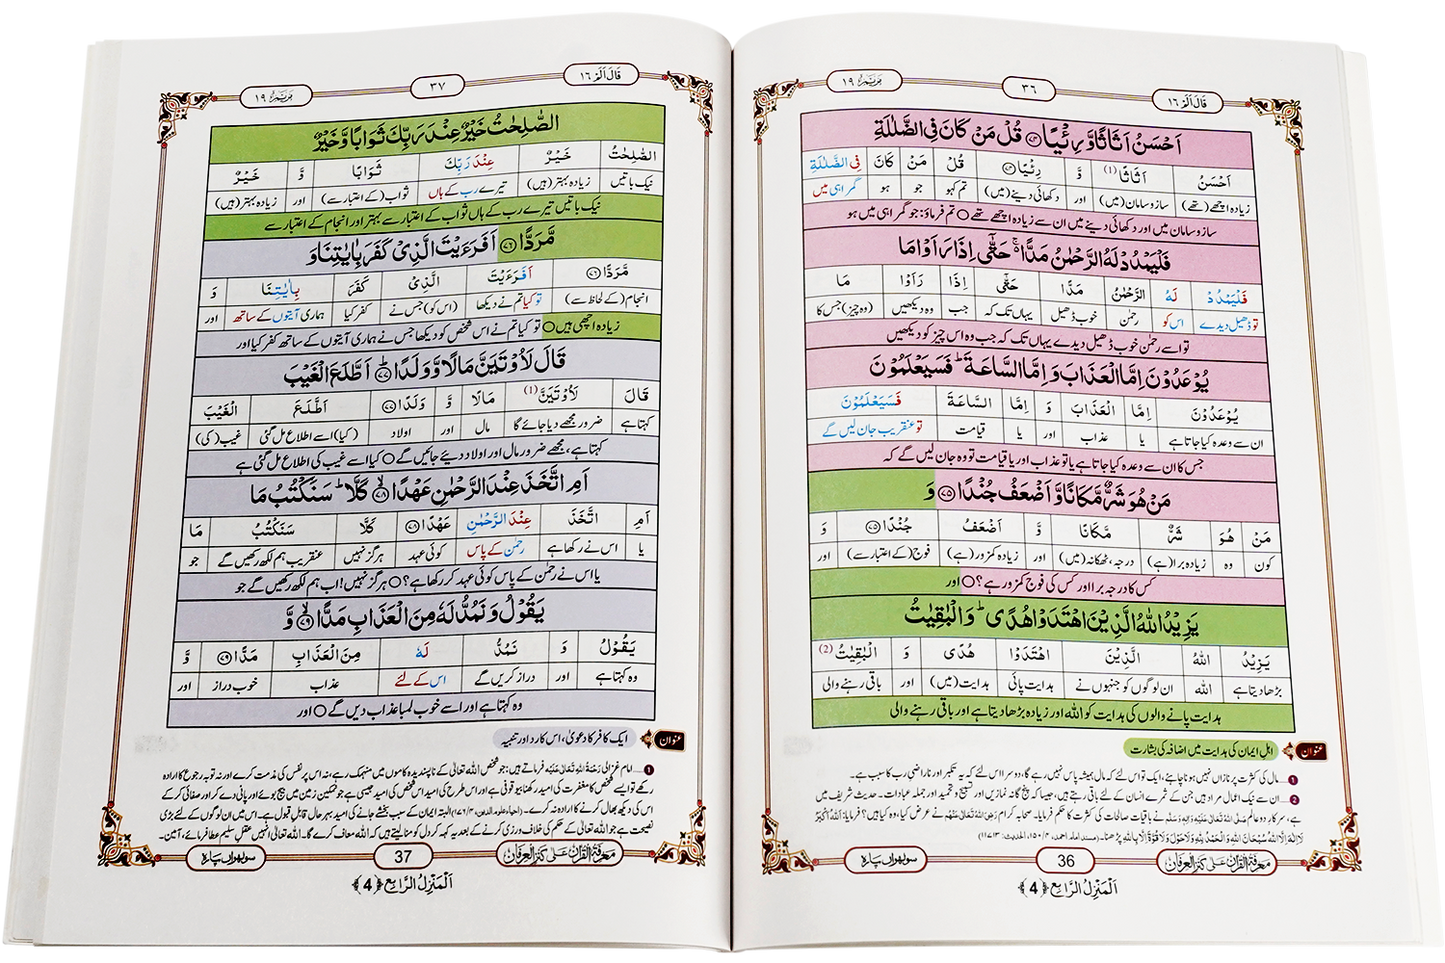 قَالَ اَلَمْ ١٦
٣٦
مَرْيَم ١٩
اَحْسَنُ اَثَاثًا وَّ رِئْيًا ﴿۷۴﴾ قُلْ مَنْ كَانَ فِی الضَّلٰلَةِ
اَحْسَنُ اَثَاثًا (1) وَّ رِئْيًا ﴿۷۴﴾ قُلْ مَنْ كَانَ فِی الضَّلٰلَةِ
زیادہ اچھے (تھے) ساز و سامان (میں) اور دکھائی دینے (میں) تم کہو جو ہو گمراہی میں
ساز و سامان میں اور دکھائی دینے میں ان سے زیادہ اچھے تھے ○ تم فرماؤ: جو گمراہی میں ہو
فَلْیَمْدُدْ لَهُ الرَّحْمٰنُ مَدًّا ۚ حَتّٰۤی اِذَا رَاَوْا مَا
فَلْیَمْدُدْ لَهُ الرَّحْمٰنُ مَدًّا حَتّٰۤی اِذَا رَاَوْا مَا
تو ڈھیل دیدے اس کو رحمٰن خوب ڈھیل یہاں تک کہ جب وہ دیکھیں (وہ چیز) جس کا
تو اسے رحمٰن خوب ڈھیل دیدے یہاں تک کہ جب وہ اس چیز کو دیکھیں
یُوْعَدُوْنَ اِمَّا الْعَذَابَ وَ اِمَّا السَّاعَةَ ؕ فَسَیَعْلَمُوْنَ
یُوْعَدُوْنَ اِمَّا الْعَذَابَ وَ اِمَّا السَّاعَةَ فَسَیَعْلَمُوْنَ
ان سے وعدہ کیا جاتا ہے یا عذاب اور یا قیامت تو عنقریب جان لیں گے
جس کا ان سے وعدہ کیا جاتا ہے یا تو عذاب اور یا قیامت تو وہ جان لیں گے کہ
مَنْ هُوَ شَرٌّ مَّكَانًا وَّ اَضْعَفُ جُنْدًا ﴿۷۵﴾ وَ
مَنْ هُوَ شَرٌّ مَّكَانًا وَّ اَضْعَفُ جُنْدًا ﴿۷۵﴾ وَ
کون وہ زیادہ برا (ہے) درجہ، ٹھکانہ (میں) اور زیادہ کمزور (ہے) فوج (کے اعتبار سے) اور
کس کا درجہ برا اور کس کی فوج کمزور ہے؟ ○ اور
یَزِیْدُ اللّٰهُ الَّذِیْنَ اهْتَدَوْا هُدًی ؕ وَ الْبٰقِیٰتُ
یَزِیْدُ اللّٰهُ الَّذِیْنَ اهْتَدَوْا هُدًی وَ الْبٰقِیٰتُ (2)
بڑھا دیتا ہے اللہ ان لوگوں کو جنہوں نے ہدایت پائی ہدایت (میں) اور باقی رہنے والی
ہدایت پانے والوں کی ہدایت کو اللہ اور زیادہ بڑھا دیتا ہے اور باقی رہنے والی
عنوان اہلِ ایمان کی ہدایت میں اضافہ کی بشارت
1 ... مال کی کثرت پر نازاں نہیں ہونا چاہئے، ایک تو اس لئے کہ مال ہمیشہ پاس نہیں رہے گا، دوسرا اس لئے کہ یہ تکبر اور ناراضی رب کا سبب ہے۔
2 ... ان سے نیک اعمال مراد ہیں جن کے ثمرے انسان کے لئے باقی رہتے ہیں، جیسا کہ پنج گانہ نمازیں اور تسبیح و تحمید اور جملہ عبادات۔ حدیث شریف میں
ہے، سرکار دو عالم صَلَّی اللہُ تَعَالٰی عَلَیْہِ وَاٰلِہٖ وَسَلَّمَ نے باقیات صالحات کی کثرت کا حکم فرمایا۔ صحابہ کرام رَضِیَ اللہُ تَعَالٰی عَنْہُمْ نے عرض کیا، وہ کیا ہیں؟ فرمایا: اَللّٰهُ اَكْبَرُ
لَا اِلٰهَ اِلَّا اللّٰهُ سُبْحَانَ اللّٰهِ وَالْحَمْدُ لِلّٰهِ وَلَا حَوْلَ وَلَا قُوَّةَ اِلَّا بِاللّٰهِ پڑھنا۔ (مسند امام احمد، ۴/۱۵۰، الحدیث: ۱۱۷۱۳)
معرفۃ القرآن علٰی کنز العرفان
36
سولھواں پارہ
اَلْمَنْزِلُ الرَّابِع ﴿4﴾
قَالَ اَلَمْ ١٦
٣٧
مَرْيَم ١٩
الصّٰلِحٰتُ خَیْرٌ عِنْدَ رَبِّكَ ثَوَابًا وَّ خَیْرٌ
الصّٰلِحٰتُ خَیْرٌ عِنْدَ رَبِّكَ ثَوَابًا وَّ خَیْرٌ
نیک باتیں زیادہ بہتر (ہیں) تیرے رب کے ہاں ثواب (کے اعتبار سے) اور زیادہ بہتر (ہیں)
نیک باتیں تیرے رب کے ہاں ثواب کے اعتبار سے بہتر اور انجام کے اعتبار سے
مَّرَدًّا ﴿۷۶﴾ اَفَرَءَیْتَ الَّذِیْ كَفَرَ بِاٰیٰتِنَا وَ
مَّرَدًّا ﴿۷۶﴾ اَفَرَءَیْتَ الَّذِیْ كَفَرَ بِاٰیٰتِنَا وَ
انجام (کے لحاظ سے) تو کیا تم نے دیکھا (اس کو) جس نے کفر کیا ہماری آیتوں کے ساتھ اور
زیادہ اچھی ہیں ○ تو کیا تم نے اس شخص کو دیکھا جس نے ہماری آیتوں کے ساتھ کفر کیا اور
قَالَ لَاُوْتَیَنَّ مَالًا وَّ وَلَدًا ﴿۷۷﴾ اَطَّلَعَ الْغَیْبَ
قَالَ لَاُوْتَیَنَّ (1) مَالًا وَّ وَلَدًا ﴿۷۷﴾ اَطَّلَعَ الْغَیْبَ
کہتا ہے ضرور مجھے دیا جائے گا مال اور اولاد (کیا) اسے اطلاع مل گئی غیب (کی)
کہتا ہے، مجھے ضرور مال اور اولاد دیئے جائیں گے ○ کیا اسے غیب کی اطلاع مل گئی ہے
اَمِ اتَّخَذَ عِنْدَ الرَّحْمٰنِ عَهْدًا ﴿۷۸﴾ كَلَّا ؕ سَنَكْتُبُ مَا
اَمِ اتَّخَذَ عِنْدَ الرَّحْمٰنِ عَهْدًا ﴿۷۸﴾ كَلَّا سَنَكْتُبُ مَا
یا اس نے رکھا ہے رحمٰن کے پاس کوئی عہد ہرگز نہیں عنقریب ہم لکھ رکھیں گے جو
یا اس نے رحمٰن کے پاس کوئی عہد کر رکھا ہے؟ ○ ہرگز نہیں! اب ہم لکھ رکھیں گے جو
یَقُوْلُ وَ نَمُدُّ لَهٗ مِنَ الْعَذَابِ مَدًّا ﴿۷۹﴾ وَّ
یَقُوْلُ وَ نَمُدُّ لَهٗ مِنَ الْعَذَابِ مَدًّا ﴿۷۹﴾ وَّ
وہ کہتا ہے اور دراز کریں گے اس کے لئے عذاب خوب دراز اور
وہ کہتا ہے اور اسے خوب لمبا عذاب دیں گے ○ اور
عنوان ایک کافر کا دعویٰ، اس کا رد اور تنبیہ
1 ... امام غزالی رَحْمَۃُ اللہِ تَعَالٰی عَلَیْہِ فرماتے ہیں: جو شخص اللہ تعالٰی کے ناپسندیدہ کاموں میں منہمک رہے، نہ اس پر نفس کی مذمت کرے اور نہ توبہ رجوع کا ارادہ
رکھے تو ایسے شخص کا مغفرت کی امید رکھنا بیوقوفی ہے اور اس طرح کی امید اس شخص کی امید جیسی ہے جو نمکین زمین میں بیج بوئے اور پانی دے کر اور صفائی کر کے
اس کی دیکھ بھال کرنے کا ارادہ نہ کرے۔ (احیاء علوم الدین، ۴/۱۷۱) البتہ ایمان کے سبب بخشے جانے کی امید بہر حال قابل قبول ہے۔ اس میں ان لوگوں کے لئے بڑی
نصیحت ہے جو اللہ تعالٰی کے حکم کی خلاف ورزی کرنے کے بعد یہ کہہ کر دل کو منا لیتے ہیں کہ اللہ معاف کرے گا۔ اللہ تعالٰی انہیں عقلِ سلیم عطا فرمائے، آمین۔
معرفۃ القرآن علٰی کنز العرفان
37
سولھواں پارہ
اَلْمَنْزِلُ الرَّابِع ﴿4﴾